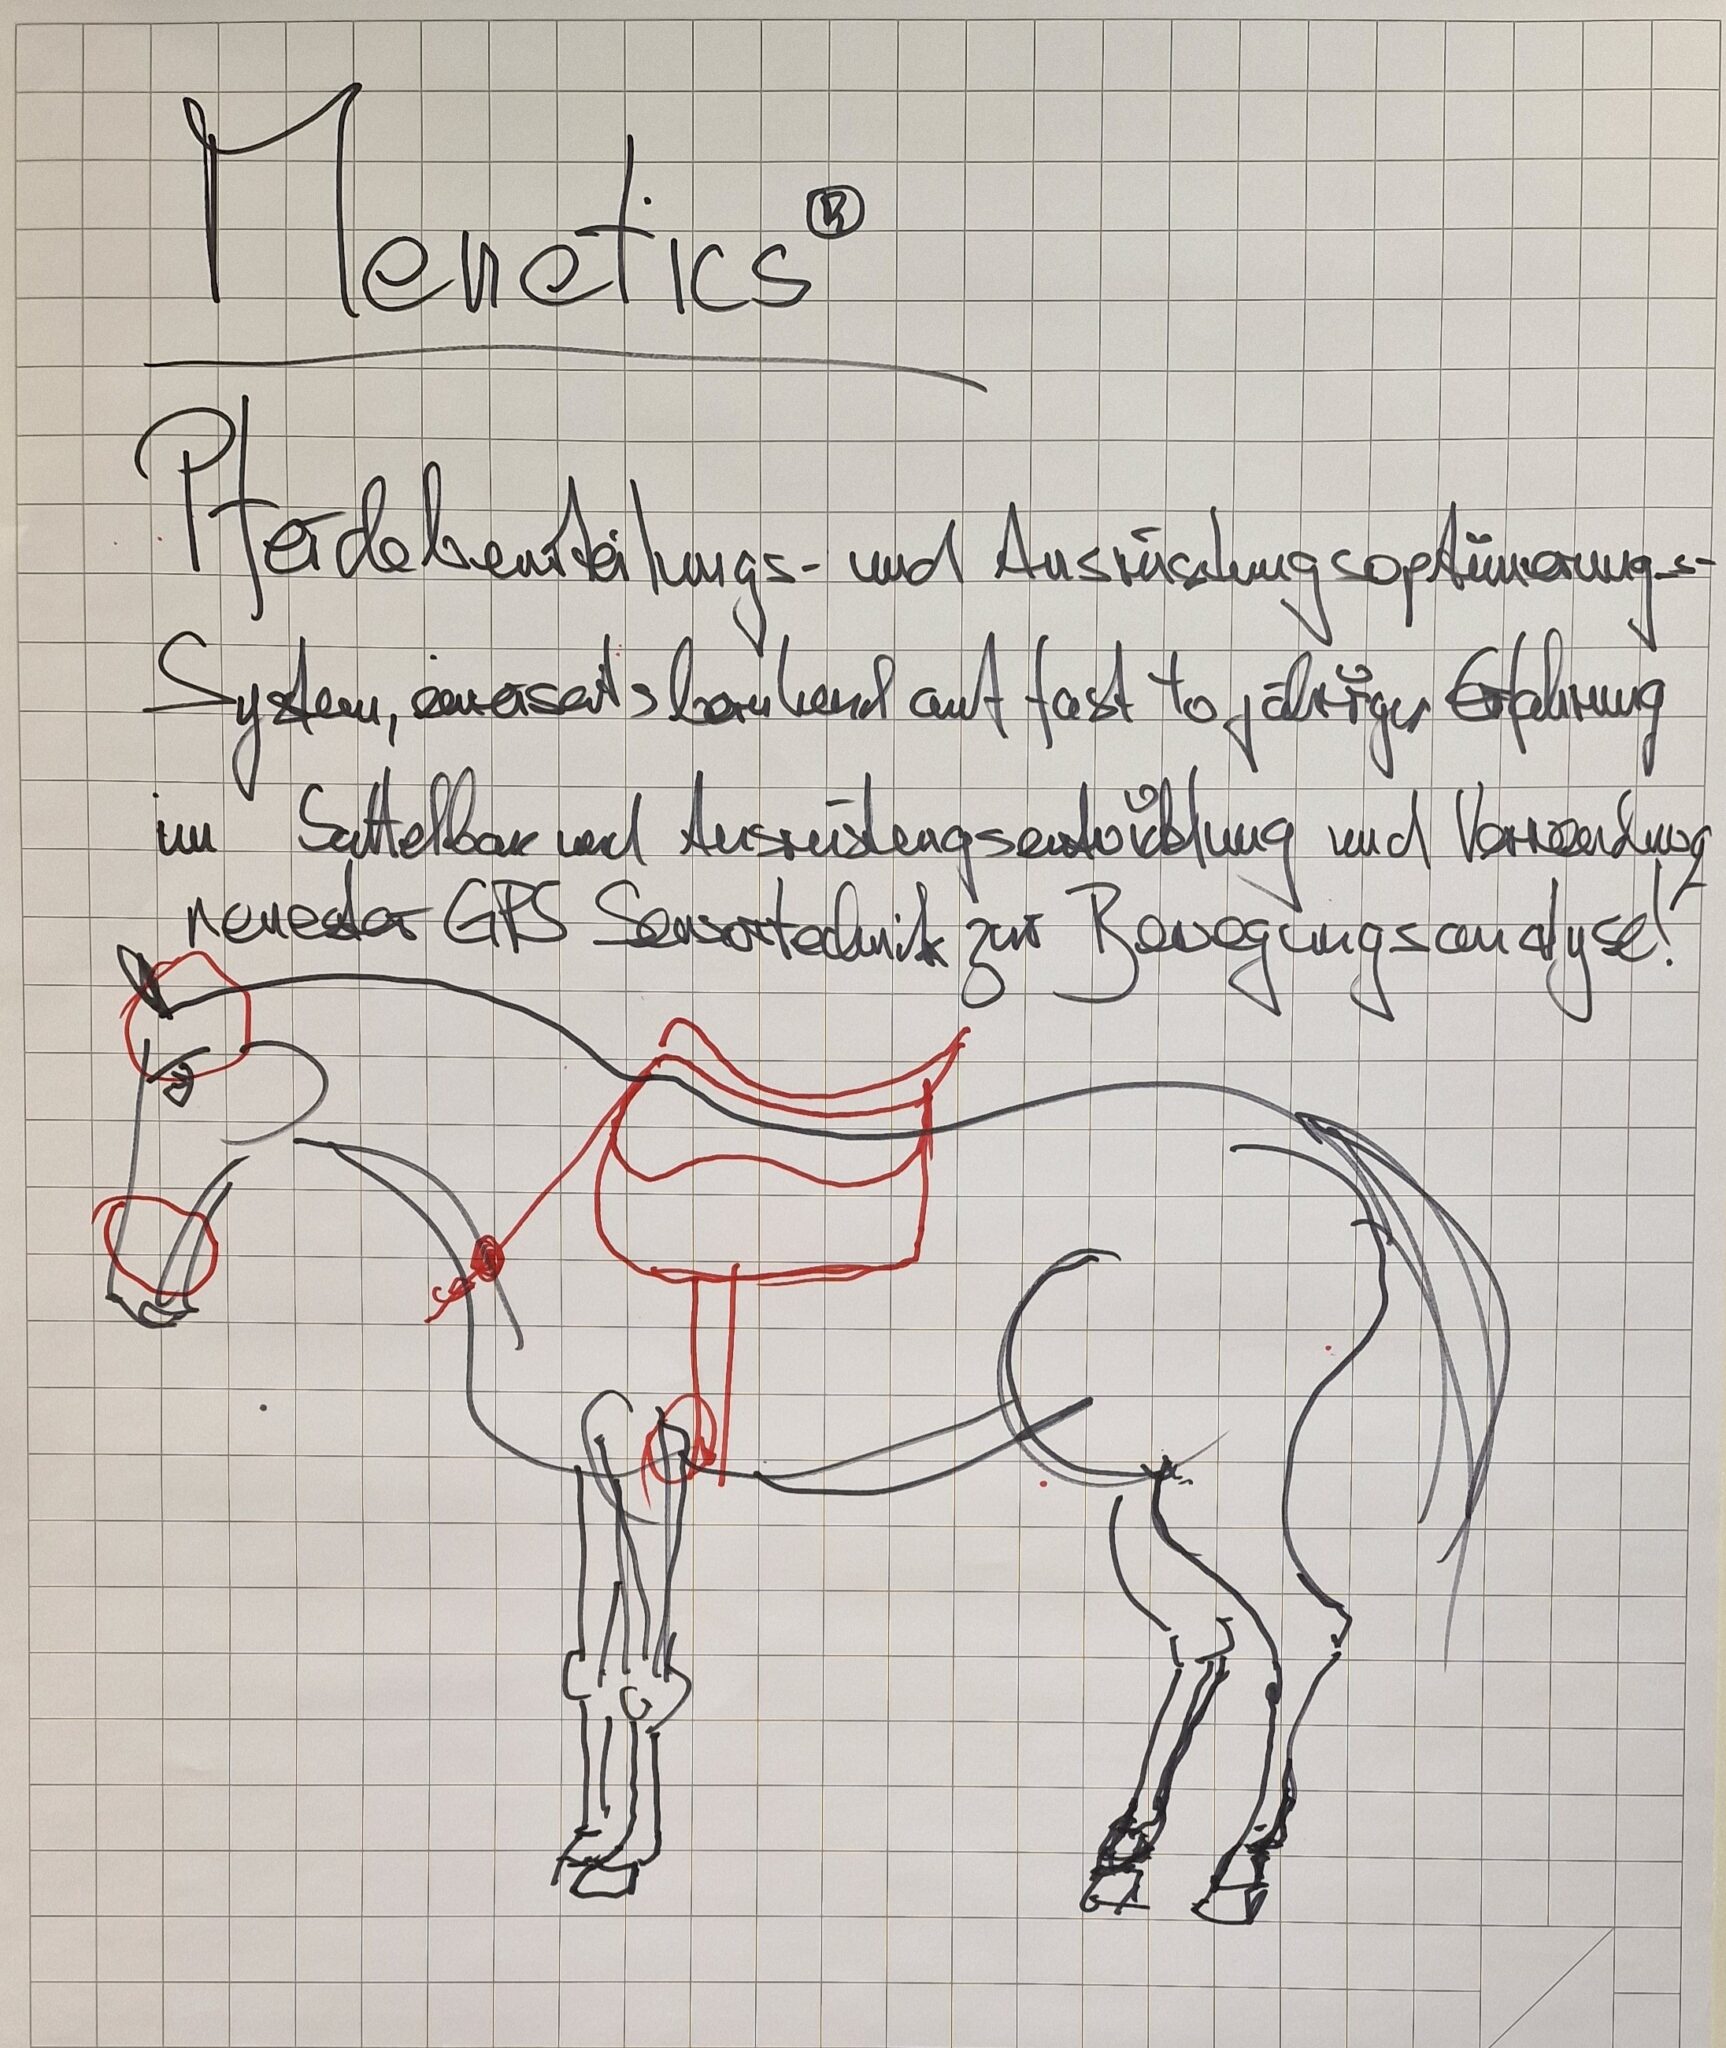 Menetics®
Pferdebeurteilungs- und Ausrüstungsoptimierungs-
System, einerseits beruhend auf fast jähriger Erfahrung
im Sattelbau und Ausrüstungsentwicklung und Verwendung
neuester GPS Sensortechnik zur Bewegungsanalyse!